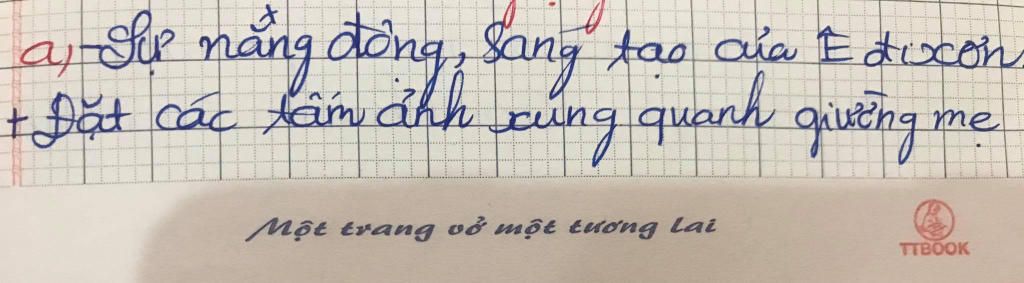 a, - Sự năng đông, sang tạo của Ê đixơn
+ Đặt các tấm ảnh xung quanh giường mẹ
Một trang vở một tương lai
TTBOOK